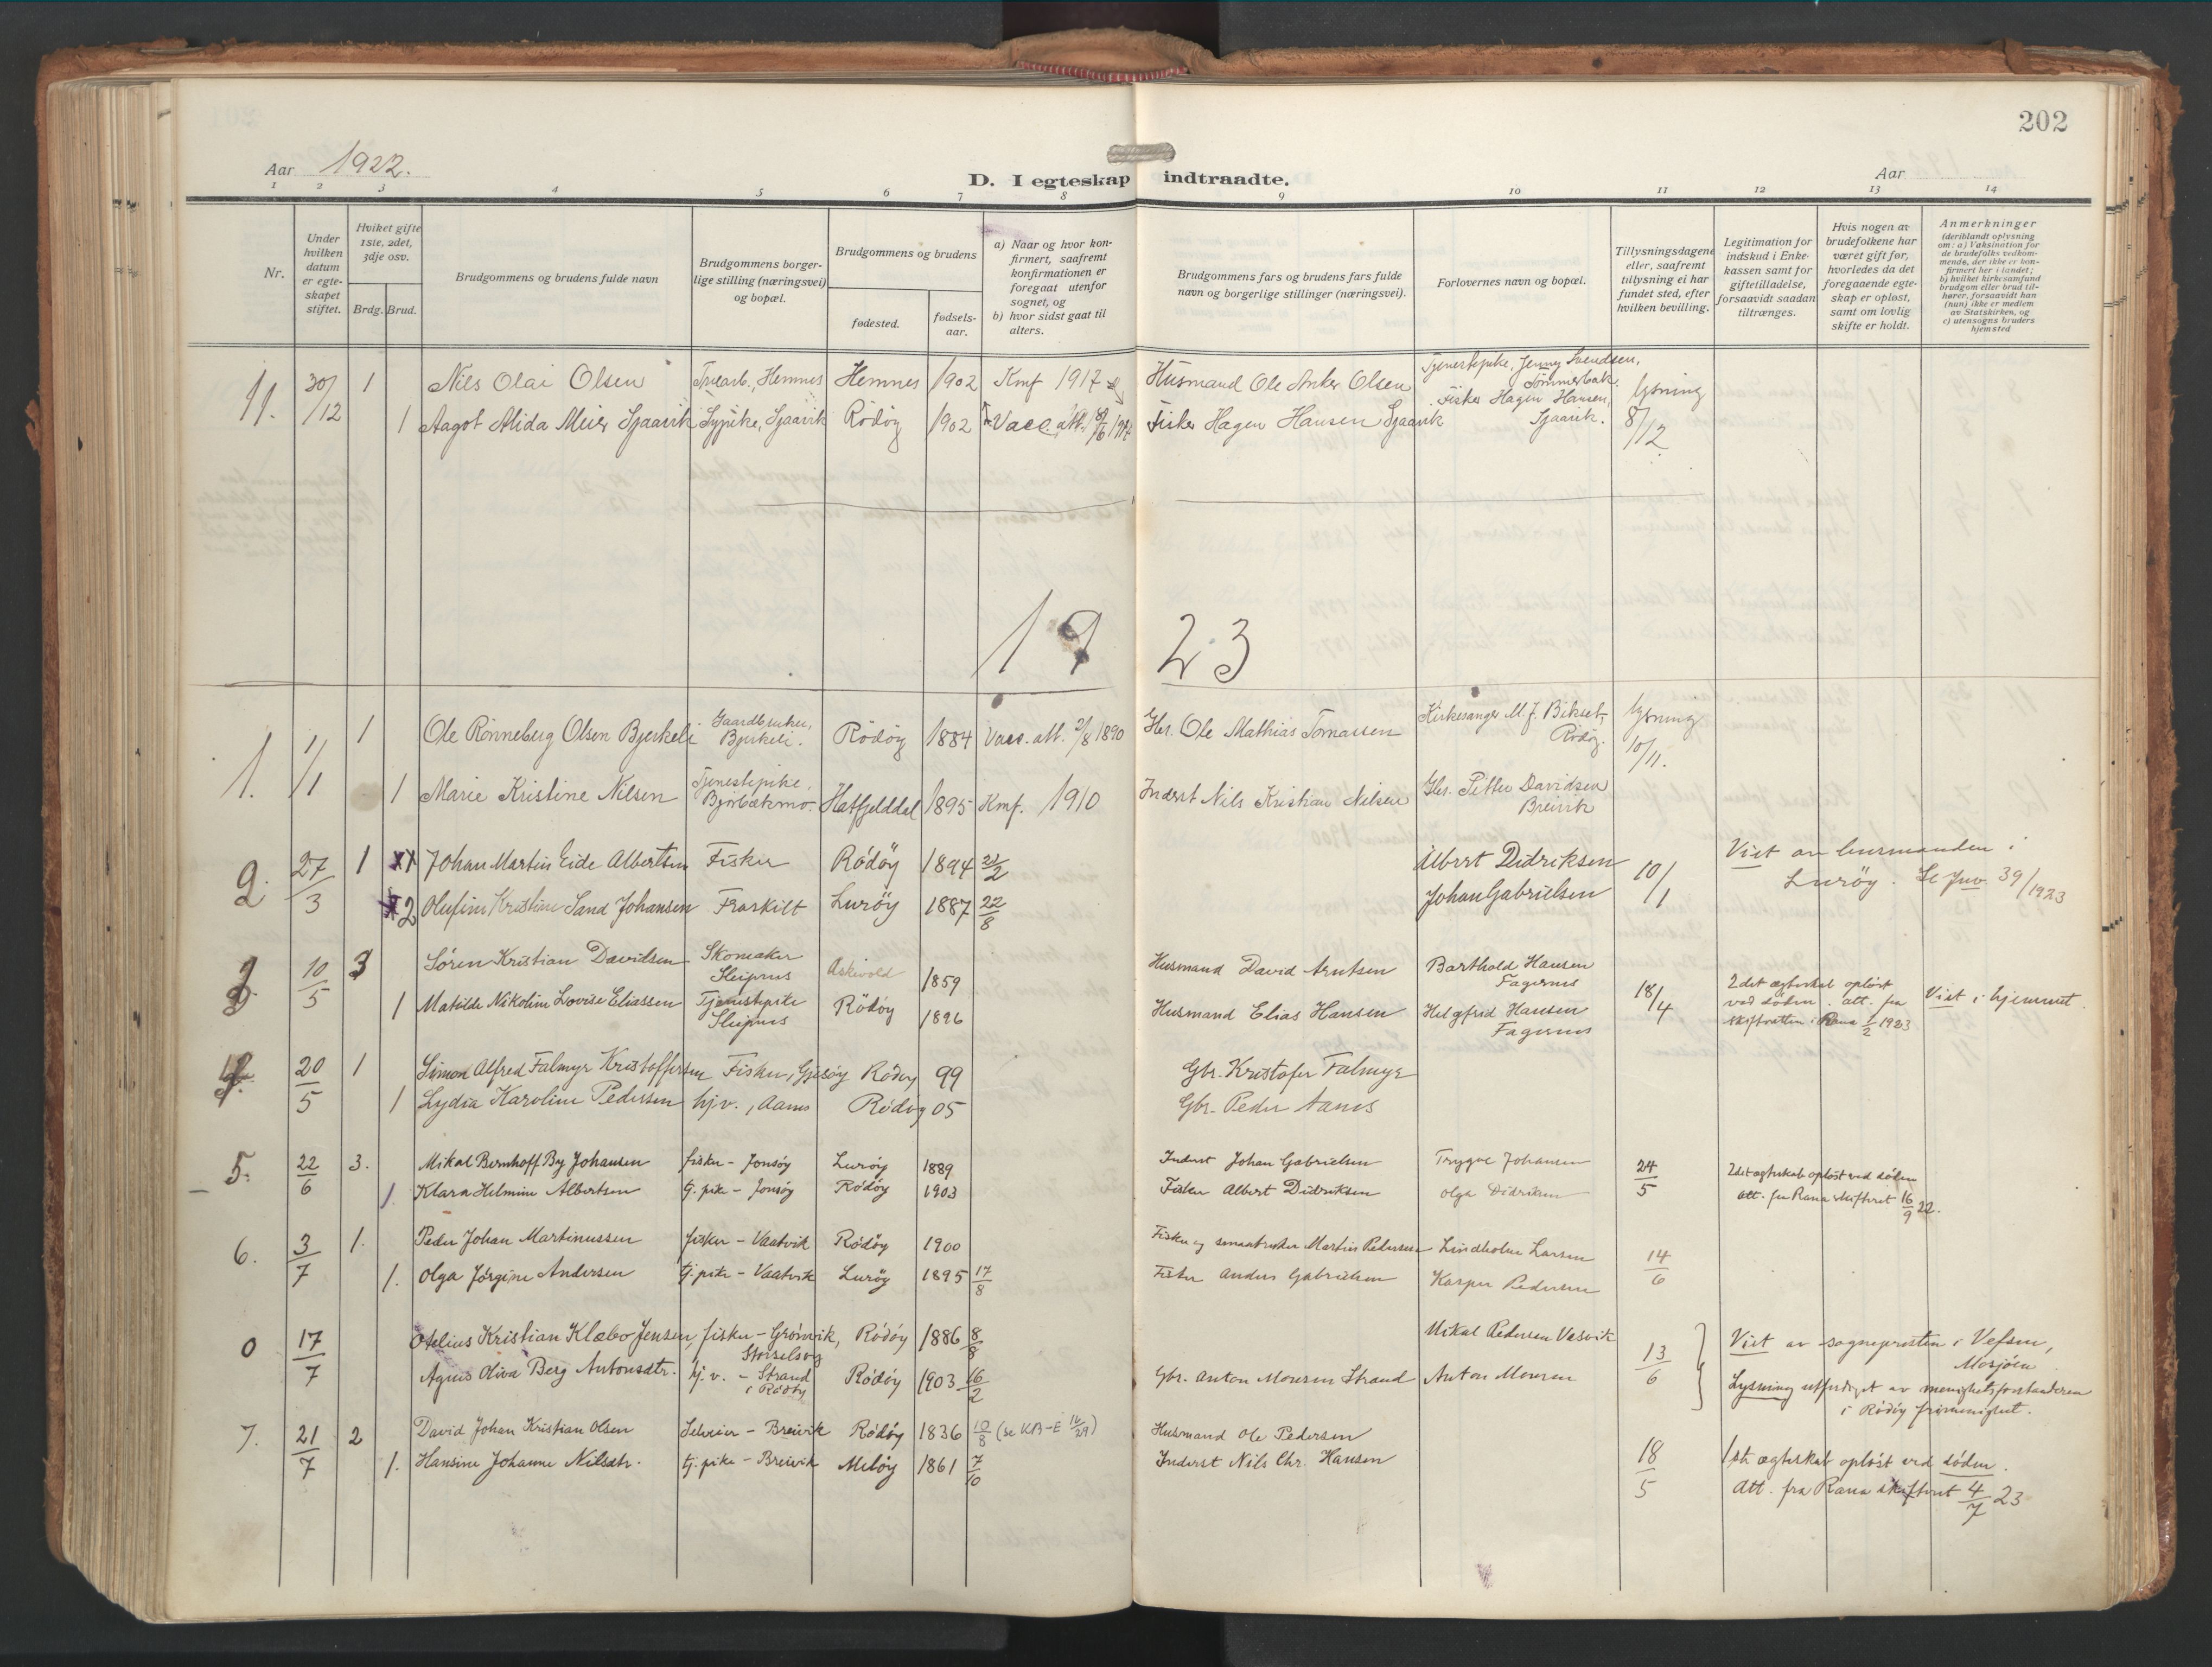 202
Aar 1922.
D. I egteskap indtraadte.
Aar
1 2 3 4 5 6 7 8 9 10 11 12 13 14
Nr.
Under hvilken datum er egteskapet stiftet.
Hvilket gifte 1ste, 2det, 3dje osv.
Brdg. Brud.
Brudgommens og brudens fulde navn
Brudgommens borgerlige stilling (næringsvei) og bopæl.
Brudgommens og brudens
fødested.
fødselsaar.
a) Naar og hvor konfirmert, saafremt konfirmationen er foregaat utenfor sognet, og
b) hvor sidst gaat til alters.
Brudgommens fars og brudens fars fulde navn og borgerlige stillinger (næringsvei).
Forlovernes navn og bopæl.
Tillysningsdagene eller, saafremt tillysning ei har fundet sted, efter hvilken bevilling.
Legitimation for indskud i Enkekassen samt for giftetilladelse, forsaavidt saadan tiltrænges.
Hvis nogen av brudefolkene har været gift før, hvorledes da det foregaaende egteskap er opløst, samt om lovlig skifte er holdt.
Anmerkninger (deriblandt oplysning om: a) Vaksination for de brudefolks vedkommende, der ikke er konfirmert her i landet; b) hvilket kirkesamfund brudgom eller brud tilhører, forsaavidt han (hun) ikke er medlem av Statskirken, og c) utensogns bruders hjemsted
11. 30/12 1 Nils Olai Olsen Hemnes Hemnes 1902 Kmf 1917 Husmand Ole Anker Olsen Tjenestepike Jenny Svendsen, lysning
1 Aagot Alida Meier Sjaavik Sypike, Sjaavik Rödöy 1902 Vacc. att. Fisker Hagen Hansen Sjaavik Fisker Hagen Hansen, Sjaavik. 8/12
1923
1. 1/1 1 Ole Rönneberg Olsen Bjerkeli Gaardbruker, Bjerkeli. Rödöy 1884 Vacc. att. 2/8 1890 Gbr. Ole Mathias Tomassen Kirkesanger M. J. Bikset, Rödöy. lysning 10/11.
1 Marie Kristine Nilsen Tjenestepike, Bjørbækmo Hatfjelddal 1895 Kmf. 1910 Inderst Nils Kristian Nilsen Gbr. Petter Davidsen Breivik
2. 27/3 1 Johan Martin Eide Albertsen Fisker Rödöy 1894 21/2 Albert Didriksen 10/1 Viet av lensmanden i
2 Olufine Kristine Sand Johansen Fraskilt Luröy 1887 22/8 Johan Gabrielsen Luröy. Se Jnv. 39/1923
3. 10/5 3 Sören Kristian Davidsen Skomaker Sleipnes Askvold 1859 Husmand David Arntsen Barthold Hansen Fagernes 18/4 2det ægteskab opløst ved døden. att. fra skifteretten i Rana 1/2 1923 Viet i hjemmet.
1 Matilde Nikoline Lovise Eliassen Tjenestepike Sleipnes Rödöy 1896 Husmand Elias Hansen Helgfrid Hansen Fagernes
4. 20/5 1 Simon Alfred Falmyr Kristoffersen Fisker, Gjesöy Rödöy 99 Gbr. Kristofer Falmyr
1 Lydia Karoline Pedersen hjv., Aanes Rödöy 05 Gbr. Peder Aanes
5. 22/6 3. Mikal Bernhoff By Johansen fisker - Jonsöy Luröy 1889 Inderst Johan Gabrielsen Trygve Johansen 24/5 2det ægteskab opløst ved døden
1. Klara Helmine Albertsen tj. pike - Jonsöy Rödöy 1903 Fisker Albert Didriksen Olga Didriksen att. fra Rana skifteret 16/9 22.
6. 3/7 1. Peder Johan Martinussen fisker - Vaatvik Rödöy 1900 Fisker og smaabruker Martin Pedersen Lindholm Larsen 14/6
1. Olga Jörgine Andersen tj. pike - Vaatvik Luröy 1895 17/8 Fisker Anders Gabrielsen Kasper Pedersen
0 17/7 Otelius Kristian Klæbo Jensen, fisker - Grönvik, Storselsöy Rödöy 1886 8/8 Mikal Pedersen Vasvik 13/6 Viet av sognepresten i Vefsen, Mosjöen
Agnes Oliva Berg Antonsdtr. hj. v. - Strand i Rödöy Rödöy 1903 16/2 Gbr. Anton Monsen Strand Anton Monsen Lysning utferdiget av menighetsforstanderen i Rödöy frimenighet.
7. 21/7 2 David Johan Kristian Olsen Selveier - Breivik Rödöy 1836 10/8 (se KB-E 14/29) Husmand Ole Pedersen 18/5 1ste ægteskab opløst ved døden.
1. Hansine Johanne Nilsdtr. tj. pike - Breivik Melöy 1861 7/10 Inderst Nils Chr. Hansen Att. fra Rana skifteret 4/7 23